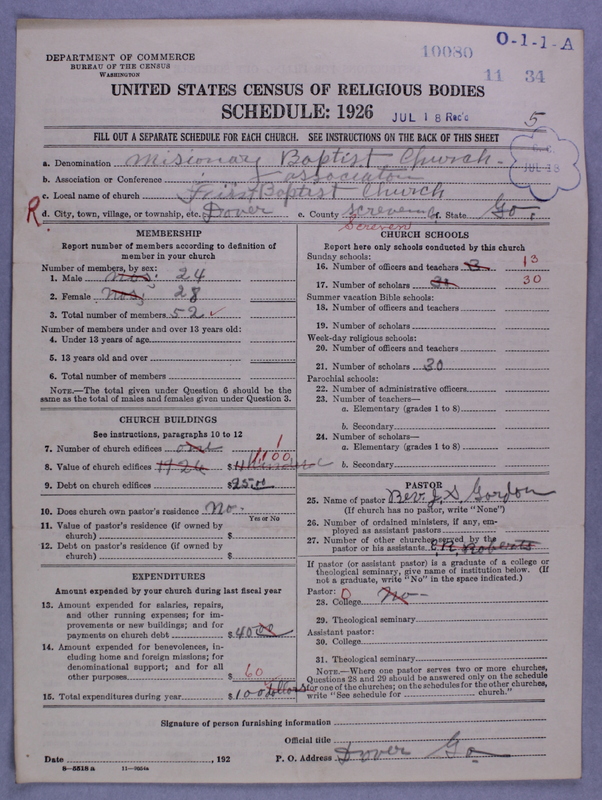 DEPARTMENT OF COMMERCE
BUREAU OF THE CENSUS
WASHINGTON
10080
O-1-1-A
11 34
UNITED STATES CENSUS OF RELIGIOUS BODIES
SCHEDULE: 1926
JUL 18 Rec'd
5
FILL OUT A SEPARATE SCHEDULE FOR EACH CHURCH. SEE INSTRUCTIONS ON THE BACK OF THIS SHEET
a. Denomination Misionary Baptist Church-
b. Association or Conference association
c. Local name of church First Baptist Church
R d. City, town, village, or township, etc. Dover e. County f. State Ga.
Screven
MEMBERSHIP
Report number of members according to definition of member in your church
Number of members, by sex:
1. Male nos. 24
2. Female nos. 28
3. Total number of members 52 ✓
Number of members under and over 13 years old:
4. Under 13 years of age
5. 13 years old and over
6. Total number of members
NOTE.—The total given under Question 6 should be the same as the total of males and females given under Question 3.
CHURCH BUILDINGS
See instructions, paragraphs 10 to 12
7. Number of church edifices 1
8. Value of church edifices $ 1100
9. Debt on church edifices $ 25.00
10. Does church own pastor's residence? No.
Yes or No
11. Value of pastor's residence (if owned by church) $
12. Debt on pastor's residence (if owned by church) $
EXPENDITURES
Amount expended by your church during last fiscal year
13. Amount expended for salaries, repairs, and other running expenses; for improvements or new buildings; and for payments on church debt $ 40.00
14. Amount expended for benevolences, including home and foreign missions; for denominational support; and for all other purposes $ 60
15. Total expenditures during year $ 100 dollars
CHURCH SCHOOLS
Report here only schools conducted by this church
Sunday schools:
16. Number of officers and teachers 3 13
17. Number of scholars 30
Summer vacation Bible schools:
18. Number of officers and teachers
19. Number of scholars
Week-day religious schools:
20. Number of officers and teachers
21. Number of scholars 30
Parochial schools:
22. Number of administrative officers
23. Number of teachers—
a. Elementary (grades 1 to 8)
b. Secondary
24. Number of scholars—
a. Elementary (grades 1 to 8)
b. Secondary
PASTOR
25. Name of pastor Rev. J. S. Gordon
(If church has no pastor, write "None")
26. Number of ordained ministers, if any, employed as assistant pastors
27. Number of other churches served by the pastor or his assistants Roberts
If pastor (or assistant pastor) is a graduate of a college or theological seminary, give name of institution below. (If not a graduate, write "No" in the space indicated.)
Pastor: 0
28. College No-
29. Theological seminary
Assistant pastor:
30. College
31. Theological seminary
NOTE.—Where one pastor serves two or more churches, Questions 28 and 29 should be answered only on the schedule for one of the churches; on the schedules for the other churches, write "See schedule for church."
Signature of person furnishing information
Official title
Date , 192 P. O. Address Dover Ga
8-5518 a